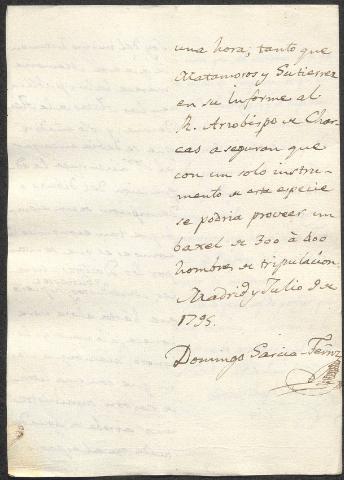 una hora; tanto que
Matamoros y Gutierrez
en su informe al
R. Arzobispo de Char-
cas aseguran que
con un solo instru-
mento de esta especie
se podria proveer un
baxel de 300 à 400
hombres de tripulacion.
Madrid y Julio 9 de
1795.
Domingo Garcia Fernz